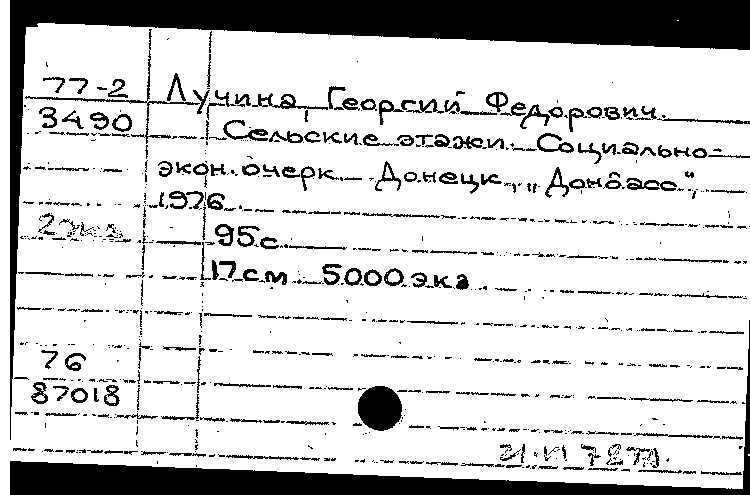 77-2 Лучина, Георгий Федорович.
3490 Сельские этажи. Социально-
экон. очерк. Донецк, „Донбасс",
1976.
95с.
17см 5000экз.
76
87018